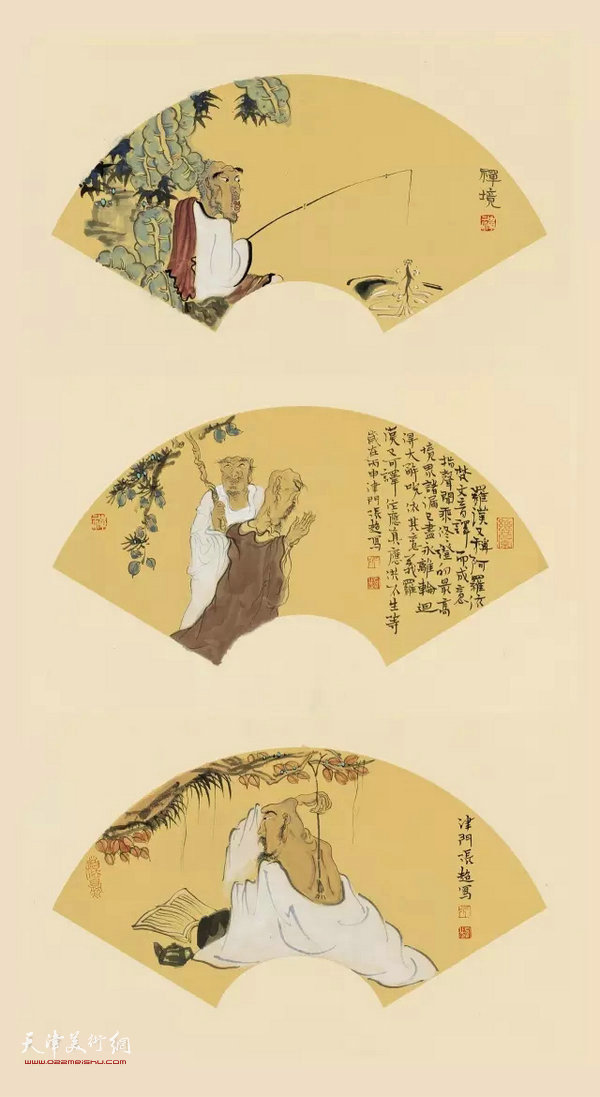 禪境
羅漢又稱阿羅漢
梵文音譯而成意
指聲聞乘修證的最高
境界諸漏已盡永離輪迴
得大解脫依其意義羅
漢又可譯應真應供不生等
歲在丙申津門張超寫
津門張超寫
天津美術網
www.022meishu.com